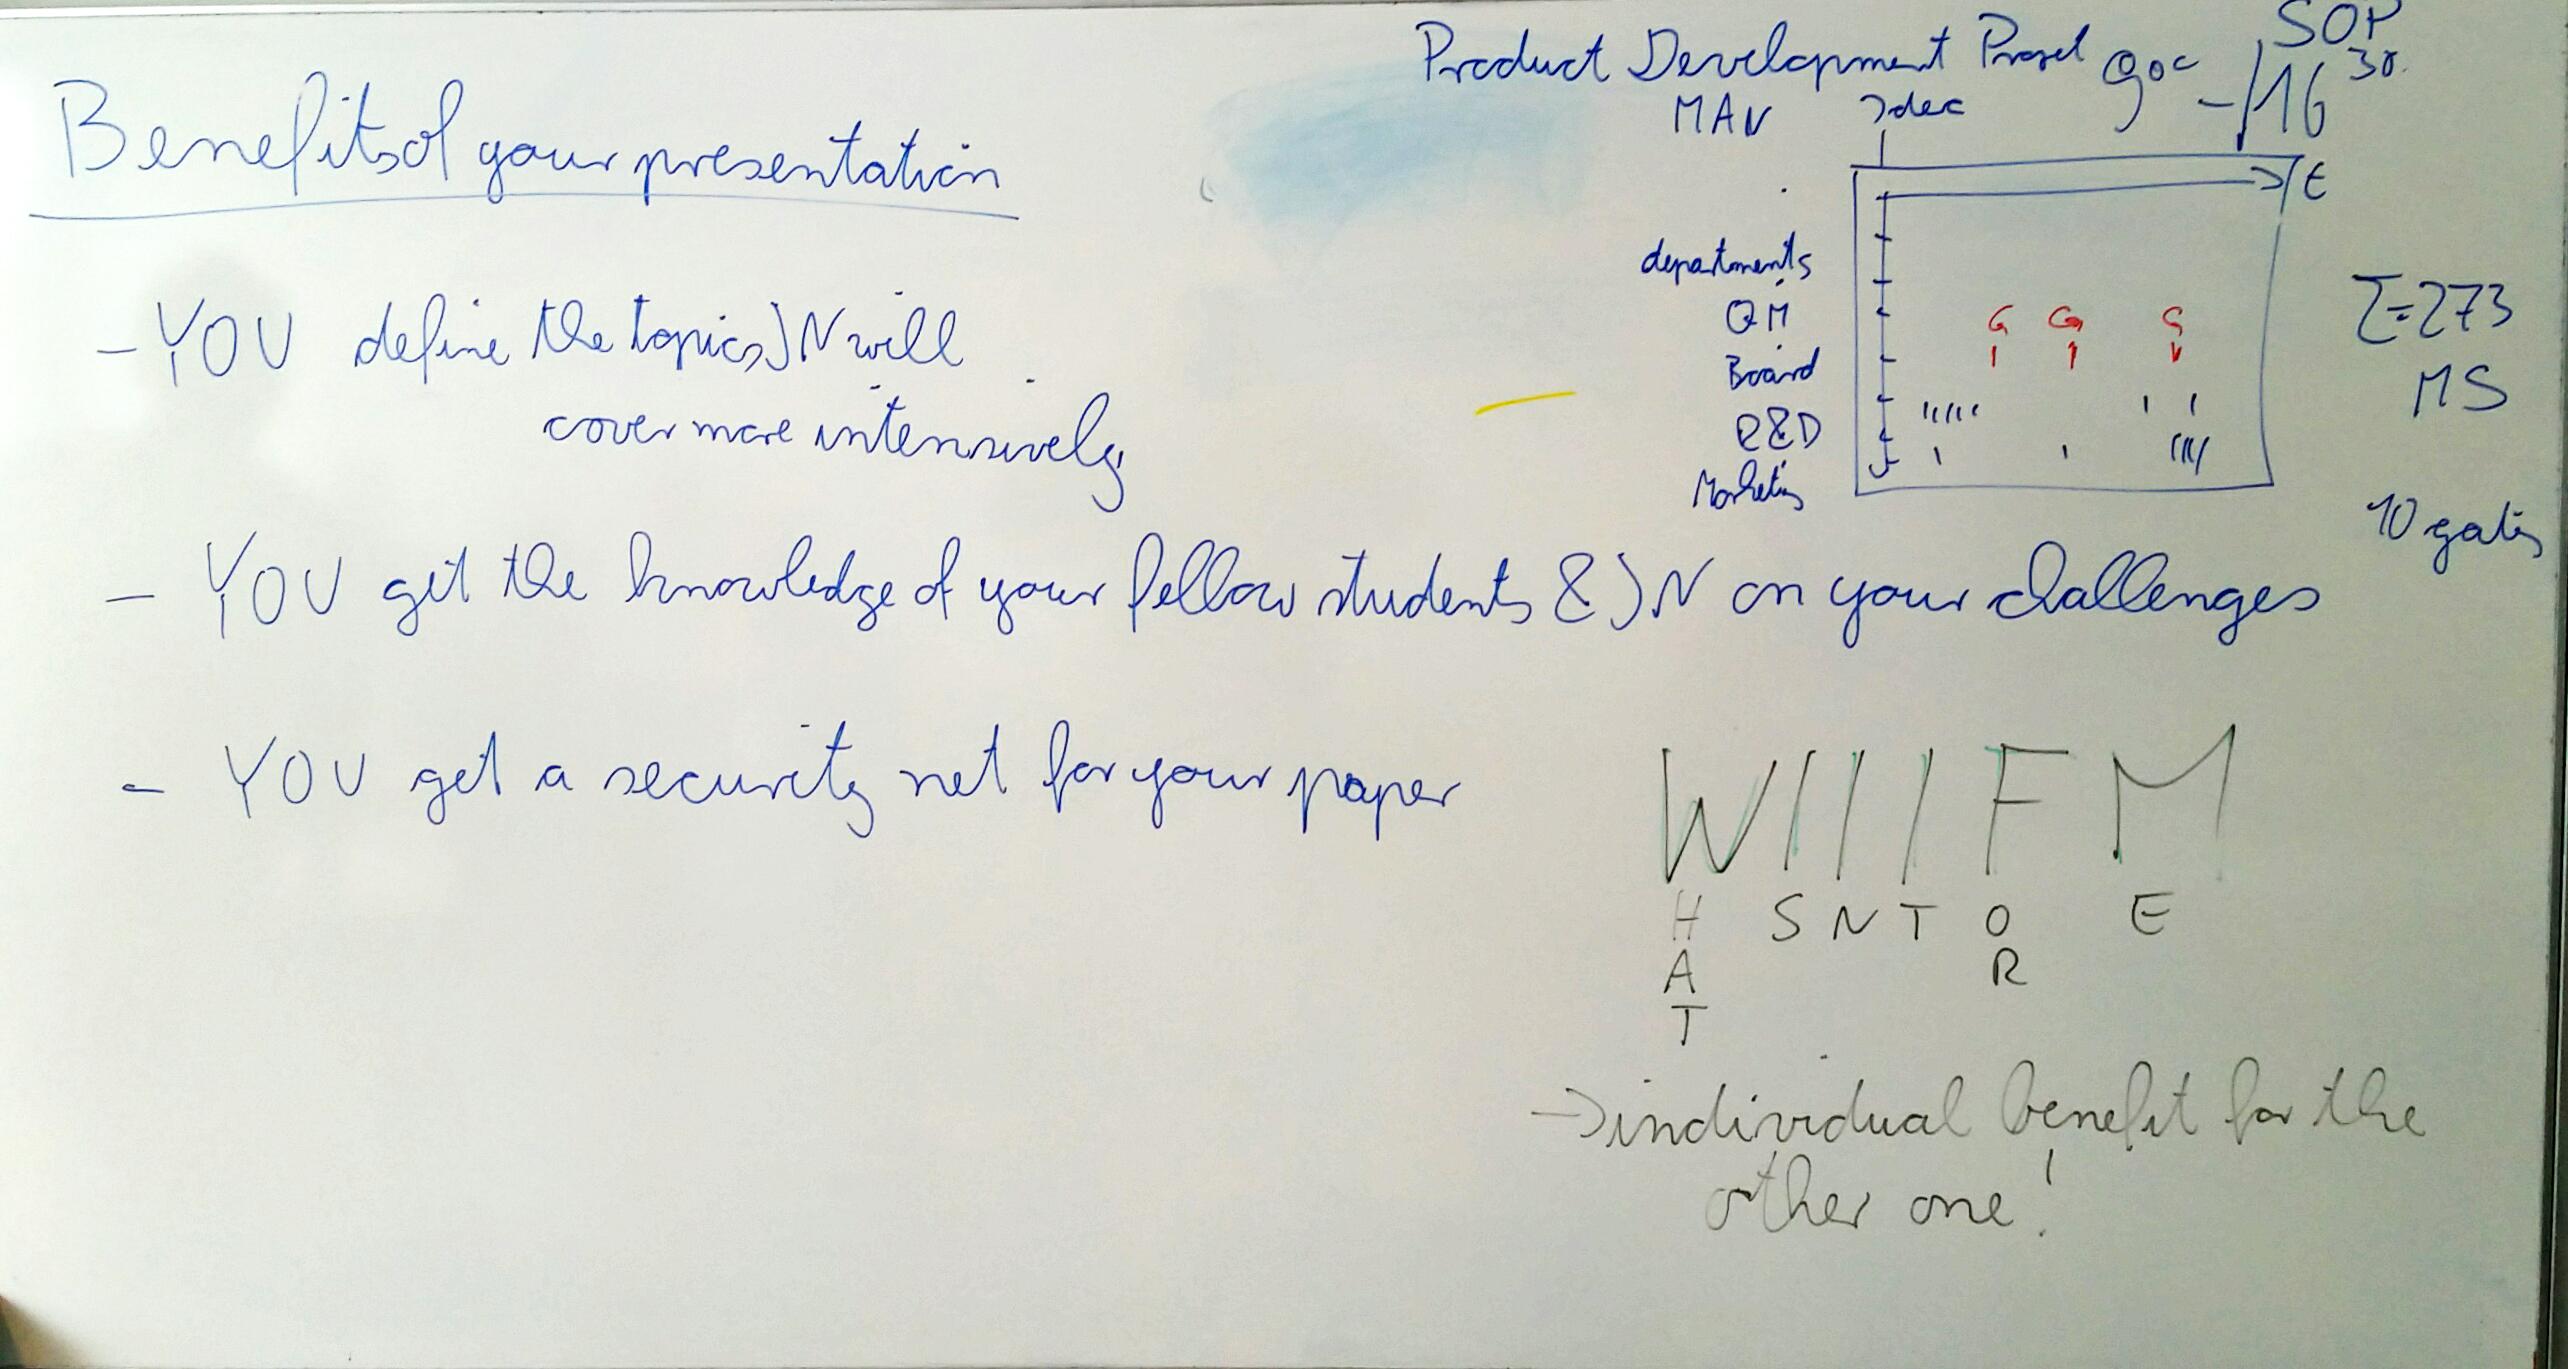 Benefits of your presentation
- YOU define the topics JN will
cover more intensively
- YOU get the knowledge of your fellow students & JN on your challenges
- YOU get a security net for your paper
Product Development
MAN
Idea
9⁰⁰ - 16³⁰
SOP
t
departments
QM
Board
R&D
Marketing
G G G
Σ=273
MS
10 gates
W I I I F M
H S N T O E
A R
T
→ individual benefit for the
other one!